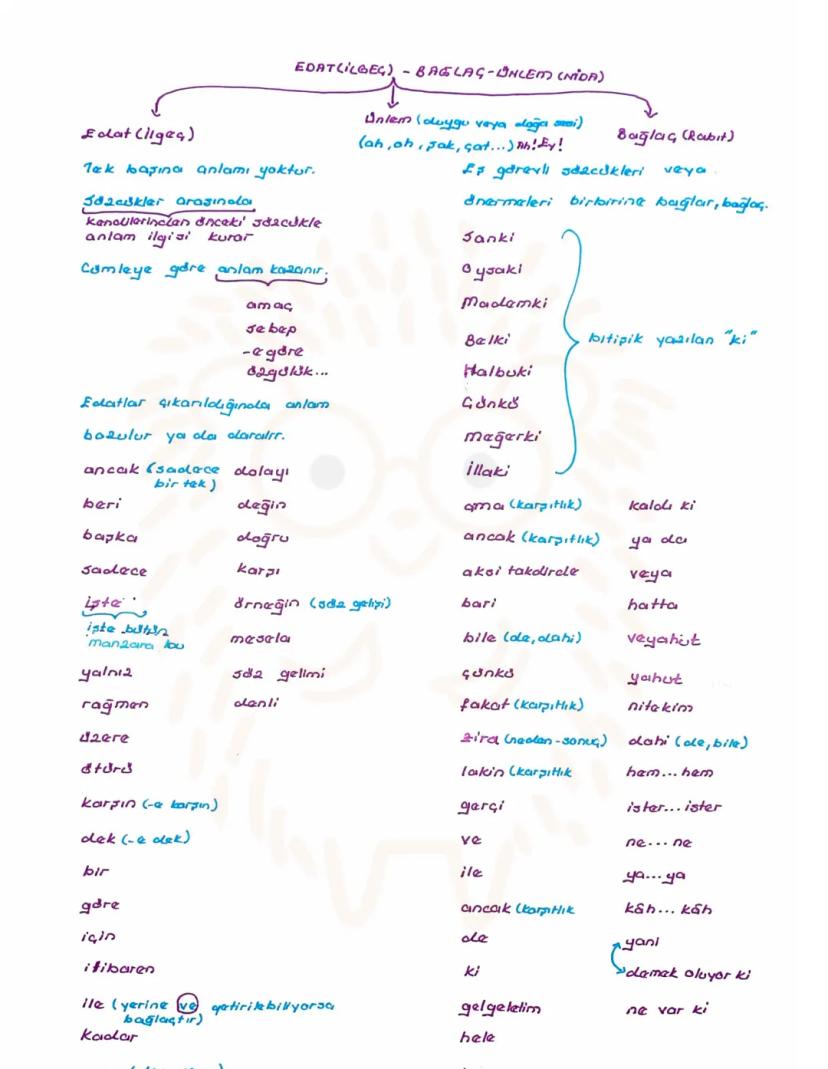 EDAT(İLGEÇ) - BAĞLAÇ-ÜNLEM (NİDA)
Edat (İlgeç)
Tek başına anlamı yoktur.
Sözcükler arasında
kendilerinden önceki sözcükle
anlam ilgisi kurar
Cümleye göre anlam kazanır.
amaç
sebep
-e göre
özgülük...
Edatlar çıkarıldığında anlam
bozulur ya da daralır.
ancak (sadece bir tek) dolayı
beri değin
başka doğru
sadece karşı
işte örneğin (söz gelişi)
işte bütün
manzara bu
mesela
yalnız söz gelimi
rağmen denli
üzere
ötürü
karşın (-e karşın)
dek (-e dek)
bir
göre
için
itibaren
ile (yerine ve getirilebiliyorsa
bağlaçtır)
Kadar
Ünlem (duygu veya doğa sesi)
(ah, oh, şak, çat...) Ah! Ey!
Bağlaç (Rabıt)
Eş görevli sözcükleri veya
önermeleri birbirine bağlar, bağlaç.
Sanki
Oysaki
Mademki
Belki
Halbuki
Çünkü
meğerki
İllaki
bitişik yazılan "ki"
ama (karşıtlık) kaldı ki
ancak (karşıtlık) ya da
aksi takdirde veya
bari hatta
bile (de, dahi) veyahut
çünkü yahut
fakat (karşıtlık) nitekim
zira (neden-sonuç) dahi (de, bile)
lakin (karşıtlık hem... hem
gerçi ister... ister
ve ne... ne
ile ya...ya
ancak (karşıtlık kâh... kâh
de yani
ki demek oluyor ki
gelgelelim ne var ki
hele